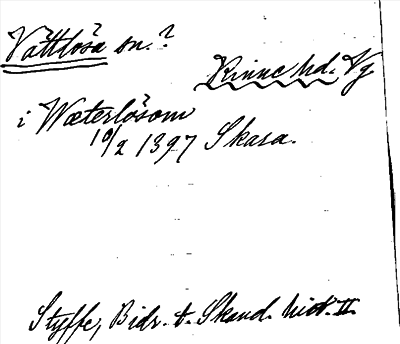 Vättlösa sn.?
Kinne hd. Vg
i Wæterlösom
10/2 1397 Skara.
Styffe, Bidr. t. Skand. hist. II.